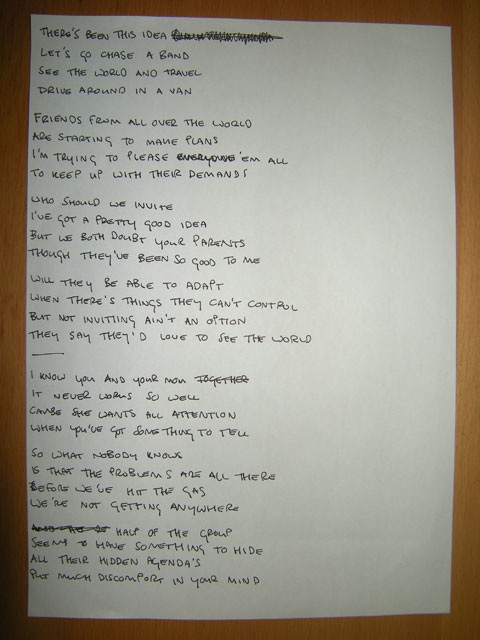 THERE'S BEEN THIS IDEA
LET'S GO CHASE A BAND
SEE THE WORLD AND TRAVEL
DRIVE AROUND IN A VAN
FRIENDS FROM ALL OVER THE WORLD
ARE STARTING TO MAKE PLANS
I'M TRYING TO PLEASE EVERYONE 'EM ALL
TO KEEP UP WITH THEIR DEMANDS
WHO SHOULD WE INVITE
I'VE GOT A PRETTY GOOD IDEA
BUT WE BOTH DOUBT YOUR PARENTS
THOUGH THEY'VE BEEN SO GOOD TO ME
WILL THEY BE ABLE TO ADAPT
WHEN THERE'S THINGS THEY CAN'T CONTROL
BUT NOT INVITING AIN'T AN OPTION
THEY SAY THEY'D LOVE TO SEE THE WORLD
I KNOW YOU AND YOUR MOM TOGETHER
IT NEVER WORKS SO WELL
CAUSE SHE WANTS ALL ATTENTION
WHEN YOU'VE GOT SOMETHING TO TELL
SO WHAT NOBODY KNOWS
IS THAT THE PROBLEMS ARE ALL THERE
BEFORE WE'VE HIT THE GAS
WE'RE NOT GETTING ANYWHERE
HALF OF THE GROUP
SEEMS TO HAVE SOMETHING TO HIDE
ALL THEIR HIDDEN AGENDA'S
PUT MUCH DISCOMFORT IN YOUR MIND